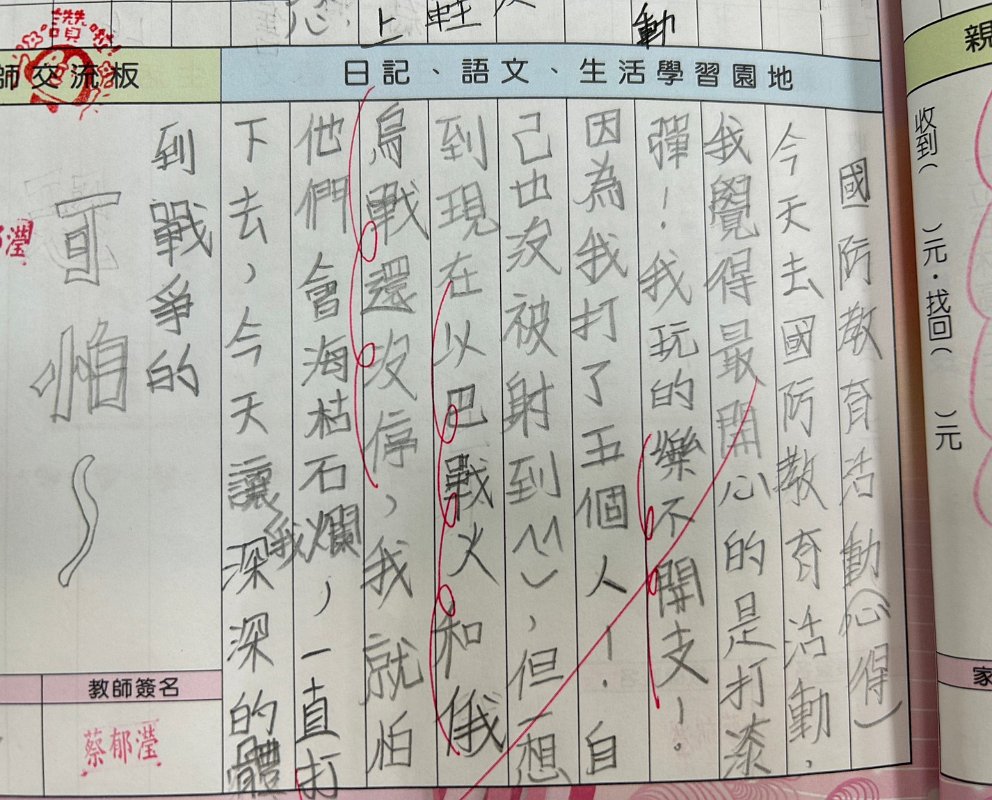 上
動
讚啦!
師交流板
日記、語文、生活學習園地
親
國防教育活動(心得)
今天去國防教育活動,
我覺得最開心的是打漆
彈!我玩的樂不開支!
因為我打了五個人!自
己也沒被射到^^),但想
到現在以巴戰火和俄
烏戰還沒停,我就怕
他們會海枯石爛,一直打
下去,今天讓我深深的體
到戰爭的
可怕
收到( )元.找回( )元
教師簽名
蔡郁瀅
家